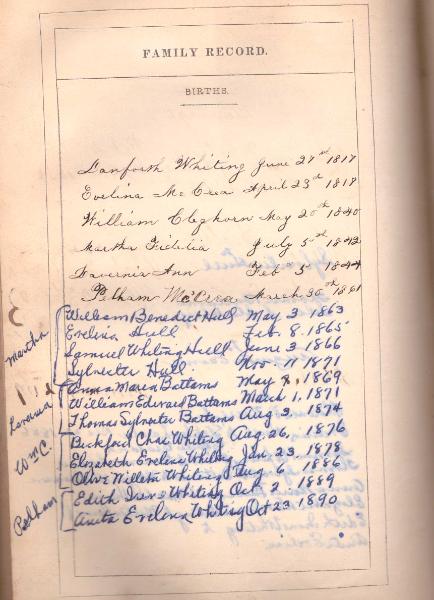 FAMILY RECORD.
BIRTHS.
Danforth Whiting June 27 1817
Evelina McCrea April 23 1818
William Cleghorn May 20th 1840
Martha Fidelia July 5th 1842
Lavernia Ann Feb 5 1844
Pelham McCrea March 30th 1851
Martha
William Benedict Hull May 3 1863
Evelina Hull Feb. 8. 1865
Samuel Whiting Hull June 3 1866
Sylvester Hull Nov 11 1871
Anna Maria Battams May 1869
William Edward Battams March 1, 1871
Thomas Sylvester Battams Aug 3, 1874
Wm C.
Bickford Chase Whiting Aug 26, 1876
Elizabeth Evelina Whiting Jan, 23, 1878
Olive Whiting Aug 6 1886
Pelham
Edith Irene Whiting Oct 2 1889
Anita Evelina Whiting Oct 23 1890